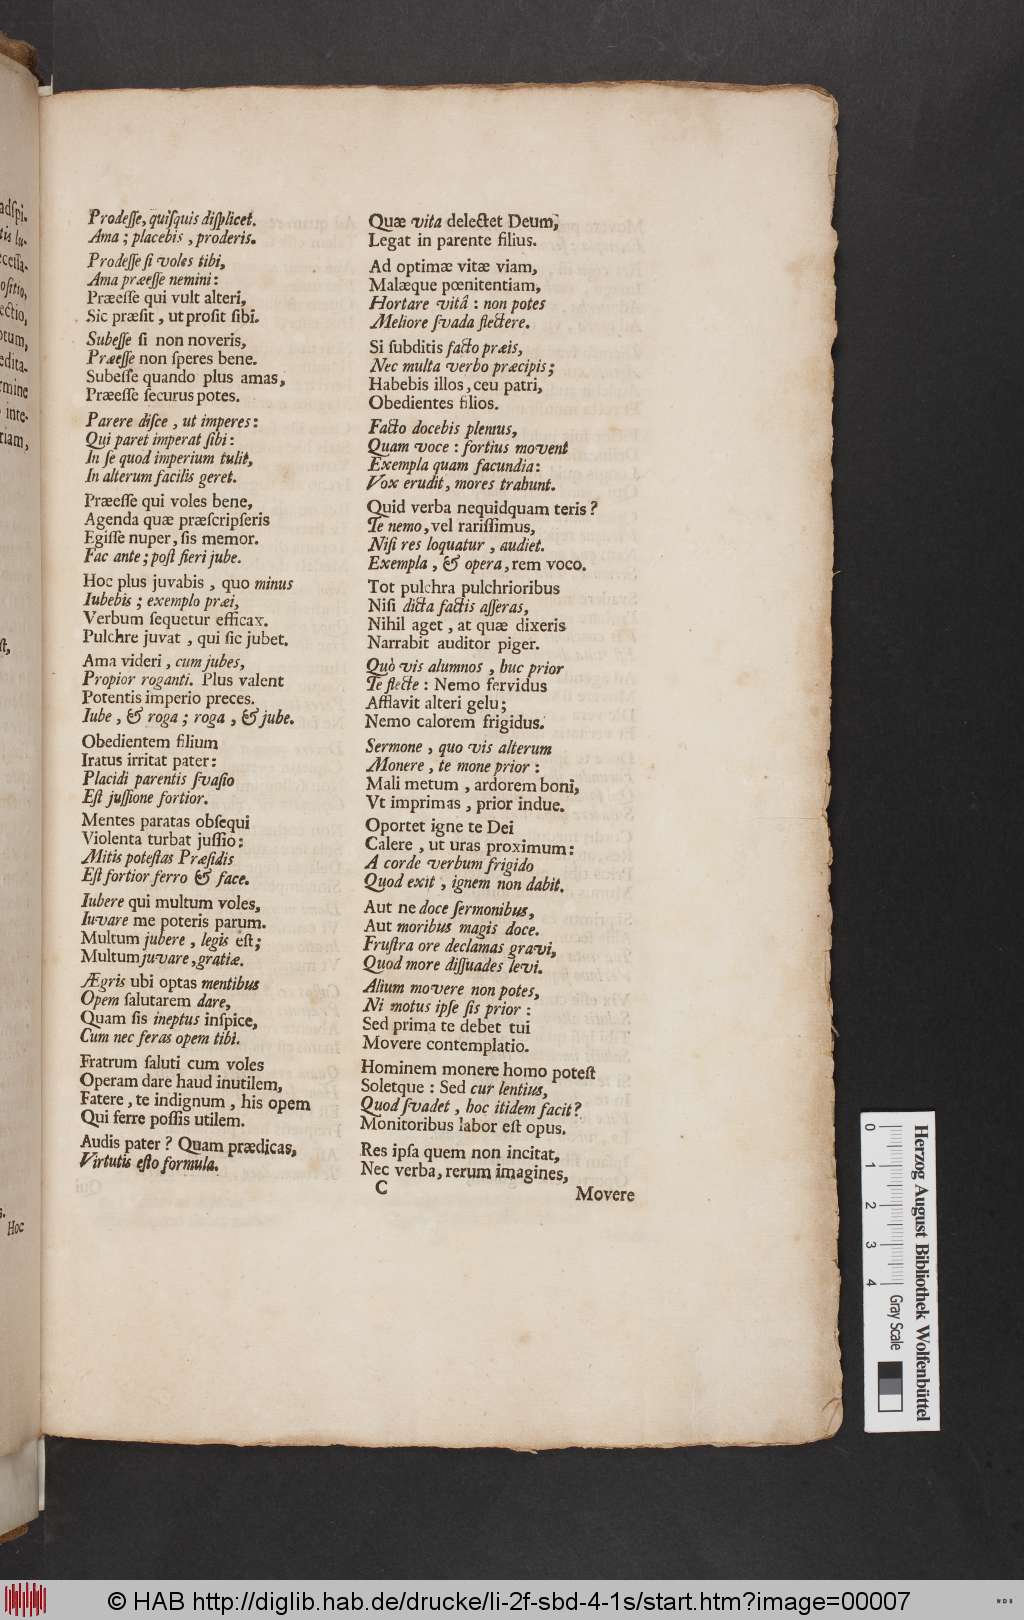 Prodesse, quisquis displicet.
Ama; placebis, proderis.
Prodesse si voles tibi,
Ama præesse nemini:
Præesse qui vult alteri,
Sic præsit, ut prosit sibi.
Subesse si non noveris,
Præesse non speres bene.
Subesse quando plus amas,
Præesse securus potes.
Parere disce, ut imperes:
Qui paret imperat sibi:
In se quod imperium tulit,
In alterum facilis geret.
Præesse qui voles bene,
Agenda quæ præscripseris
Egisse nuper, sis memor.
Fac ante; post fieri jube.
Hoc plus juvabis, quo minus
Iubebis; exemplo præi,
Verbum sequetur efficax.
Pulchre juvat, qui sic jubet.
Ama videri, cum jubes,
Propior roganti. Plus valent
Potentis imperio preces.
Iube, & roga; roga, & jube.
Obedientem filium
Iratus irritat pater:
Placidi parentis svasio
Est jussione fortior.
Mentes paratas obsequi
Violenta turbat jussio:
Mitis potestas Præsidis
Est fortior ferro & face.
Iubere qui multum voles,
Iuvare me poteris parum.
Multum jubere, legis est;
Multum juvare, gratiæ.
Ægris ubi optas mentibus
Opem salutarem dare,
Quam sis ineptus inspice,
Cum nec feras opem tibi.
Fratrum saluti cum voles
Operam dare haud inutilem,
Fatere, te indignum, his opem
Qui ferre possis utilem.
Audis pater? Quam prædicas,
Virtutis esto formula.
Quæ vita delectet Deum,
Legat in parente filius.
Ad optimæ vitæ viam,
Malæque pœnitentiam,
Hortare vitâ: non potes
Meliore svada flectere.
Si subditis facto præis,
Nec multa verbo præcipis;
Habebis illos, ceu patri,
Obedientes filios.
Facto docebis plenius,
Quam voce: fortius movent
Exempla quam facundia:
Vox erudit, mores trahunt.
Quid verba nequidquam teris?
Te nemo, vel rarissimus,
Nisi res loquatur, audiet.
Exempla, & opera, rem voco.
Tot pulchra pulchrioribus
Nisi dicta factis asseras,
Nihil aget, at quæ dixeris
Narrabit auditor piger.
Quò vis alumnos, huc prior
Te flecte: Nemo fervidus
Afflavit alteri gelu;
Nemo calorem frigidus.
Sermone, quo vis alterum
Monere, te mone prior:
Mali metum, ardorem boni,
Vt imprimas, prior indue.
Oportet igne te Dei
Calere, ut uras proximum:
A corde verbum frigido
Quod exit, ignem non dabit.
Aut ne doce sermonibus,
Aut moribus magis doce.
Frustra ore declamas gravi,
Quod more dissuades levi.
Alium movere non potes,
Ni motus ipse sis prior:
Sed prima te debet tui
Movere contemplatio.
Hominem monere homo potest
Soletque: Sed cur lentius,
Quod svadet, hoc itidem facit?
Monitoribus labor est opus.
Res ipsa quem non incitat,
Nec verba, rerum imagines,
C
Movere
Hoc
Herzog August Bibliothek Wolfenbüttel
0 1 2 3 4
Gray Scale
© HAB http://diglib.hab.de/drucke/li-2f-sbd-4-1s/start.htm?image=00007